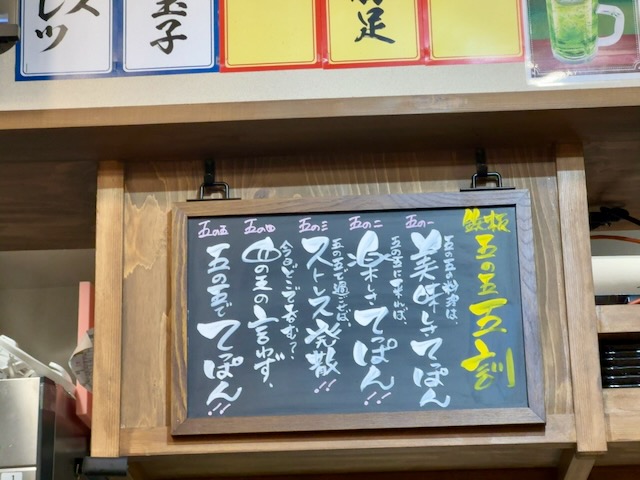 ス
レツ
玉子
足
鉄板 五の五 五訓
五の一
五の五の料理は、
美味しさてっぱん
五の二
五の五に来れば、
楽しさてっぱん!!
五の三
五の五で過ごせば、
ストレス発散!!
五の四
今日どこで呑むって
四の五の言わず、
五の五
五の五で てっぱん!!